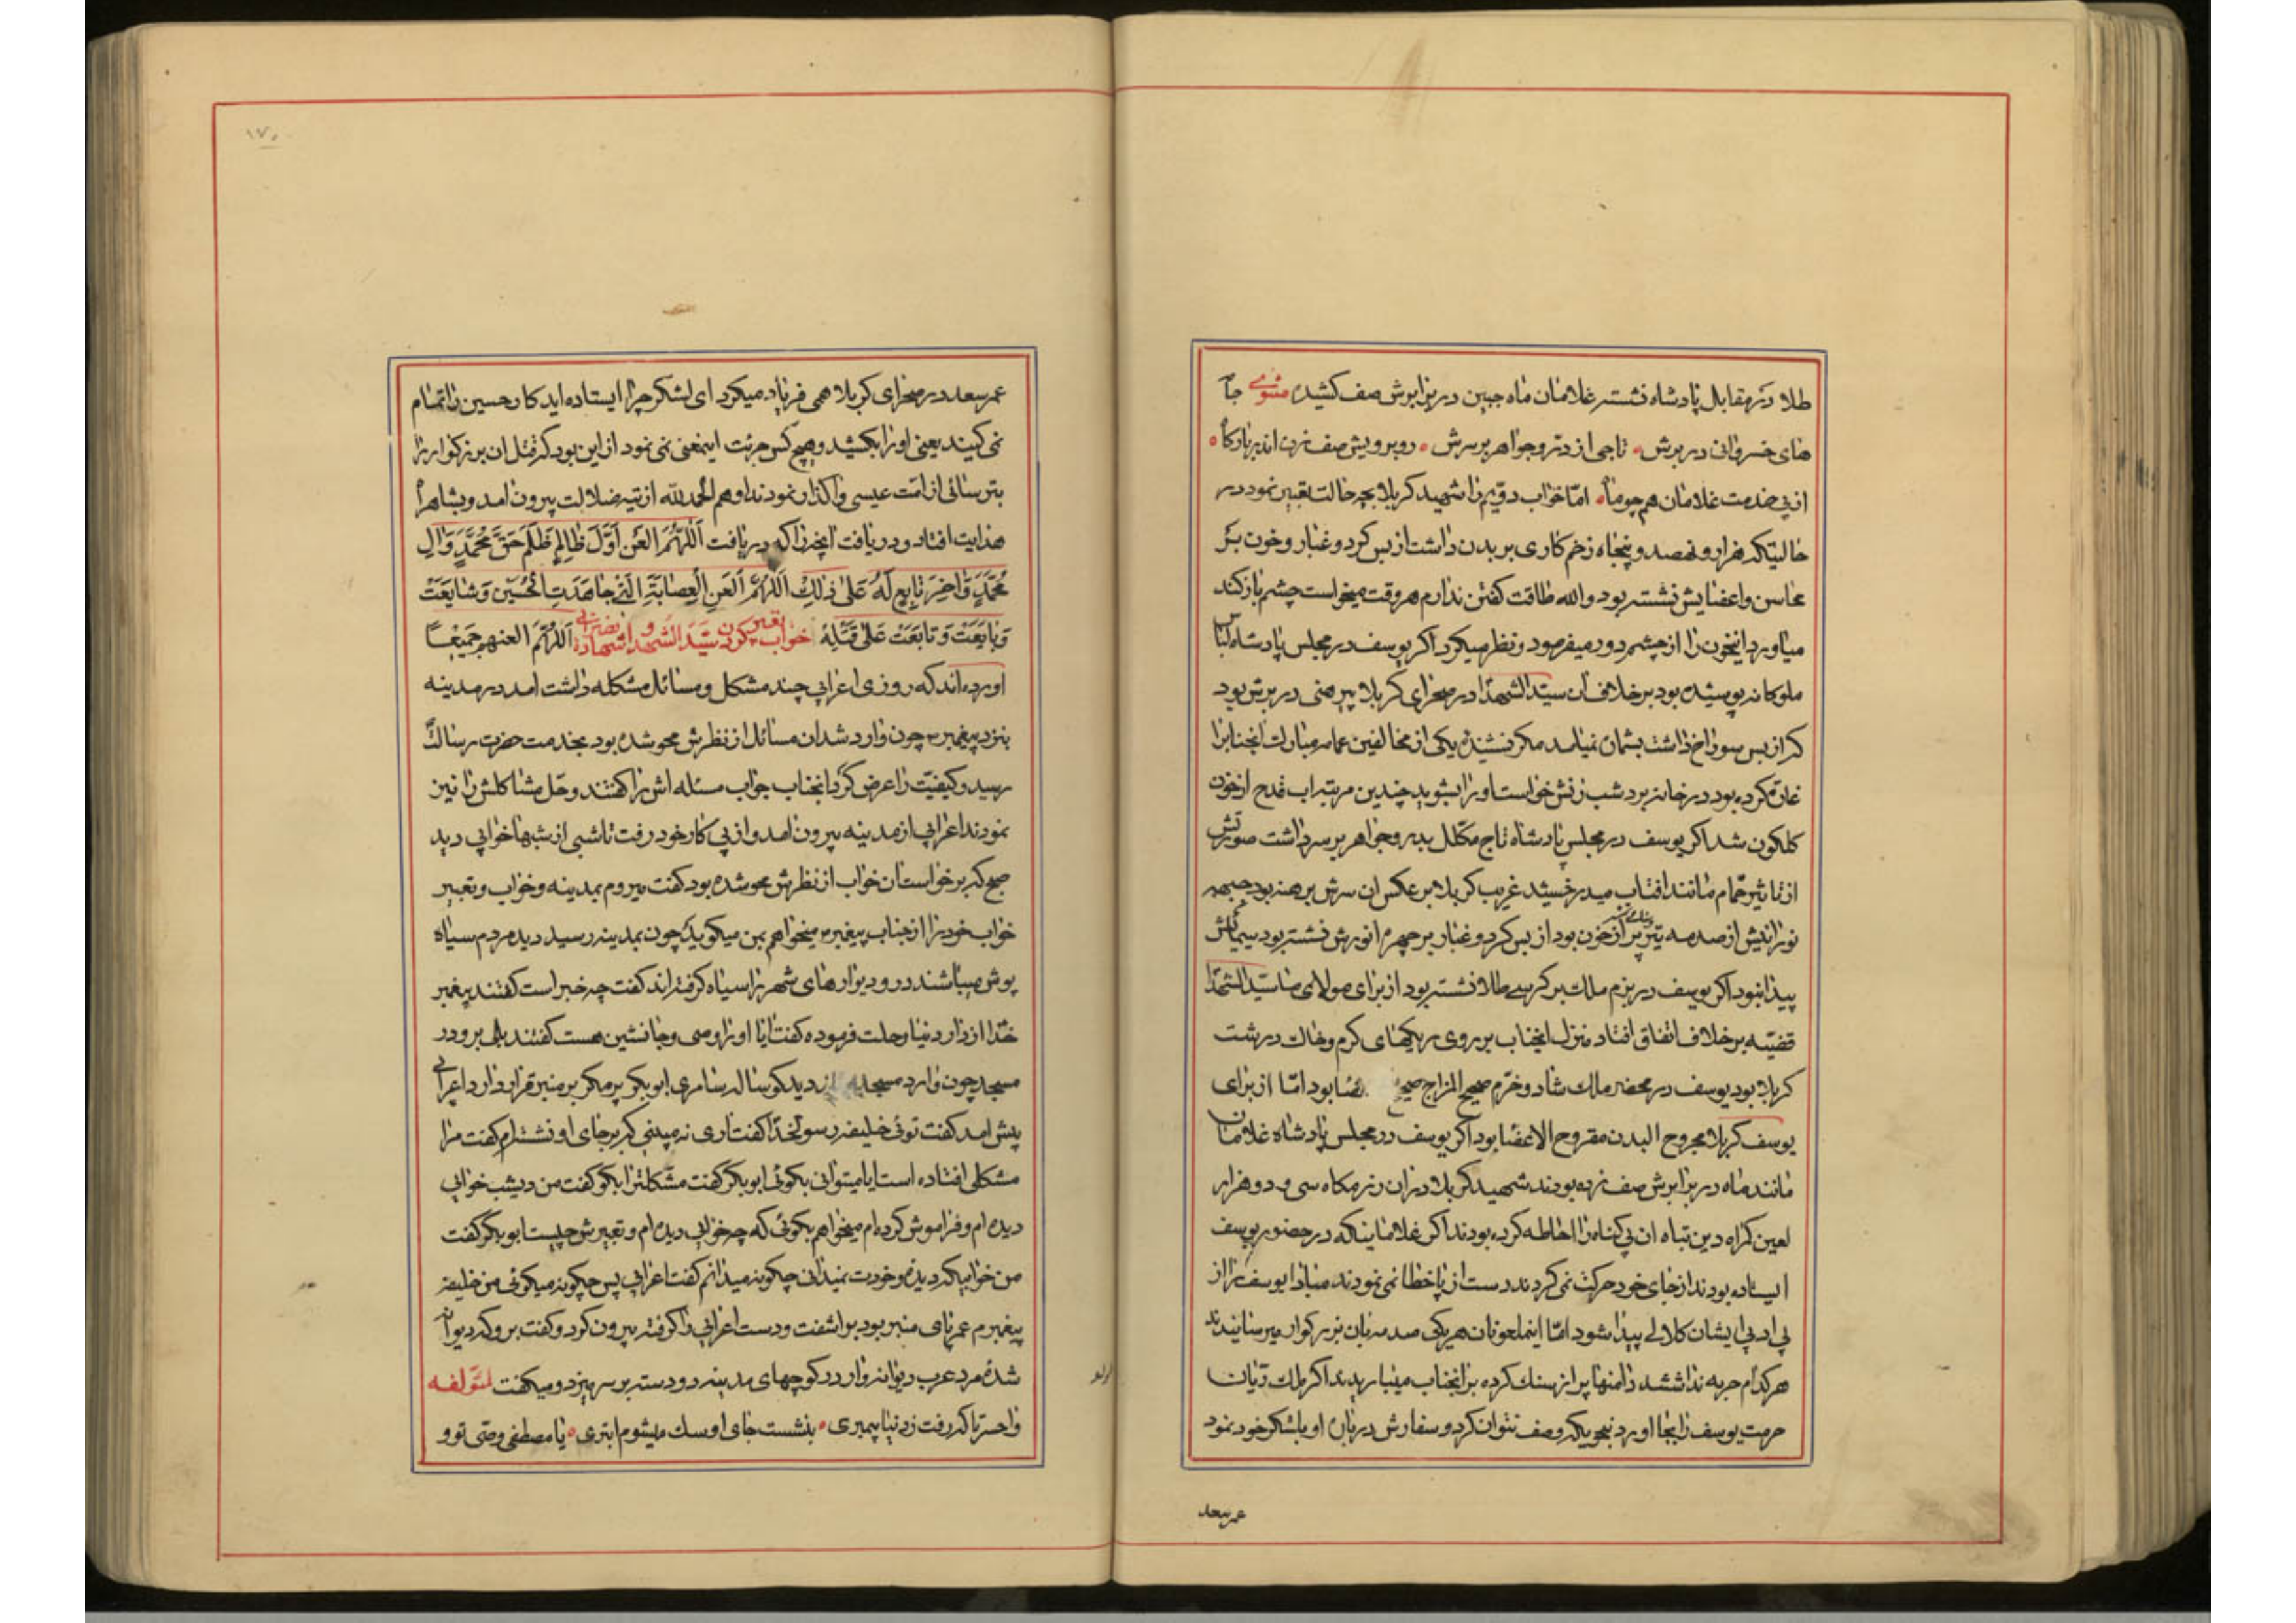 طلا در مقابل پادشاه نشسته غلامان ماه جبین در برابرش صف کشیده مثنوی جامه
های خسروانی در برش • تاجی از در و جواهر بر سرش • روبرویش صف زده اند بارگاه •
از پی خدمت غلامان همچو ماه • امّا خواب دویّم را شهید کربلا بچه حالت تعبیر نمود در
حالتیکه هزار و نهصد و پنجاه زخم کاری بر بدن داشت از بس کرد و غبار و خون بر
محاسن و اعضایش نشسته بود والله طاقت کفتن ندارم هر وقت میخواست چشم باز کند
میاورد انخون را از چشم دور میفرمود و نظر میکرد اکر یوسف در مجلس پادشاه لباس
ملوکانه پوشیده بود بر خلاف ان سیّد الشهدا در صحرای کربلا پیرهنی در برش بود
که از بس سوراخ داشت بشمان نمیامد مکر نشنیده یکی از مخالفین عمامه مبارک انجنابرا
غارت کرده بود در خانه برد شب زنش خواست اورا بشوید چندین مرتبه اب قدح از خون
کلکون شد اکر یوسف در مجلس پادشاه تاج مکلل بدر و جواهر بر سر داشت صورتش
از تاثیر حمّام مانند افتاب میدرخشید غریب کربلا بر عکس ان سرش برهنه بود جبهه
نورانیش از صدمه تیر پر از خون بود از بس کرد و غبار بر چهره انورش نشسته بود سیمایش
پیدا نبود اکر یوسف در بزم ملک بر کرسی طلا نشسته بود از برای مولای ما سیّد الشهدا
قضیّه بر خلاف اتفاق افتاد منزل انجناب بر روی ریکهای کرم و خاک در دشت
کربلا بود یوسف در محضر ملک شاد و خرّم صحیح المزاج صحیح بود امّا از برای
یوسف کربلا مجروح البدن مقروح الاعضا بود اکر یوسف در مجلس پادشاه غلامان
مانند ماه در برابرش صف زده بودند شهید کربلا در ان رزمکاه سی و دو هزار
لعین کمراه دین تباه ان بی کناه را احاطه کرده بودند اکر غلامانیکه در حضور یوسف
ایستاده بودند از جای خود حرکت نمی کردند دست از پا خطا نمی نمودند مبادا یوسف را از
بی ادبی ایشان کلالی پیدا شود امّا اینملعونان هر یکی صدمه بان بزرکوار میرسانیدند
هر کدام حربه نداشتند دامنها پر از سنک کرده بر انجناب میباریدند اکر ملک ریّان
حرمت یوسف را بجا اورد بنحویکه وصف نتوان کرد و سفارش درباره او بلشکر خود نمود
عمر سعد
۱۷۰
عمر سعد در صحرای کربلا همی فریاد میکرد ای لشکر چرا ایستاده اید کار حسین را تمام
نمی کنید یعنی اورا بکشید و هیچ کس جرئت اینمعنی نمی نمود از این بود که قتل ان بزرکوار را
بترسائی از امّت عیسی واکذار نمودند او هم الحمد لله از تیه ضلالت بیرون امد و بشاهراه
هدایت افتاد و دریافت انچه را که دریافت اَللّهُمَّ العَن اَوَّلَ ظالِمٍ ظَلَمَ حَقَّ مُحَمَّدٍ وَالِ
مُحَمَّدٍ وَاخِرَ تابِعٍ لَهُ عَلی ذلِكَ اَللّهُمَّ العَنِ العِصابَةَ الَّتی جاهَدَتِ الحُسَیْنَ وَشایَعَتْ
وَبایَعَتْ وَتابَعَتْ عَلی قَتْلِهِ خواب تعبیر کردن سیّد الشهدا و شهادة نصرانی اَللّهُمَّ العنهم جَمیعًا
اورده اند که روزی اعرابی چند مشکل و مسائل مشکله داشت امد در مدینه
بنزد پیغمبر ص چون وارد شد ان مسائل از نظرش محو شده بود بخدمت حضرت رسالت
رسید و کیفیّت را عرض کرد انجناب جواب مسئله اش را کفتند و حل مشاکلش را نیز
نمودند اعرابی از مدینه بیرون امد و از پی کار خود رفت تا شبی از شبها خوابی دید
صبح که برخواست ان خواب از نظرش محو شده بود کفت میروم بمدینه و خواب و تعبیر
خواب خود را از جناب پیغمبر ص میخواهم بمن میکوید چون بمدینه رسید دید مردم سیاه
پوش میباشند در و دیوارهای شهر را سیاه کرفته اند کفت چه خبر است کفتند پیغمبر
خدا از دار دنیا رحلت فرموده کفت ایا اورا وصی و جانشین هست کفتند بلی برو در
مسجد چون وارد مسجد شد دید کوساله سامری ابوبکر پر مکر بر منبر قرار دارد اعرابی
پیش امد کفت توئی خلیفه رسولخدا کفت اری نمیبینی که بر جای او نشسته ام کفت مرا
مشکلی افتاده است ایا میتوانی بکوئی ابوبکر کفت مشکلترا بکو کفت من دیشب خوابی
دیده ام و فراموش کرده ام میخواهم بکوئی که چه خوابی دیده ام و تعبیرش چیست ابوبکر کفت
من خوابیکه دیده و خودت نمیدانی چکونه میدانم کفت اعرابی پس چکونه میکوئی من خلیفه
پیغمبرم عمر پای منبر بود بر اشفت و دست اعرابی را کرفته بیرون کرد و کفت برو که دیوانه
شده مرد عرب دیوانه وار در کوچهای مدینه دو دسته بر سر میزد و میکفت لمؤلفه
واحسرتا که رفت ز دنیا پیمبری • بنشست جای او سک میشوم ابتری • یا مصطفی وصی تو و